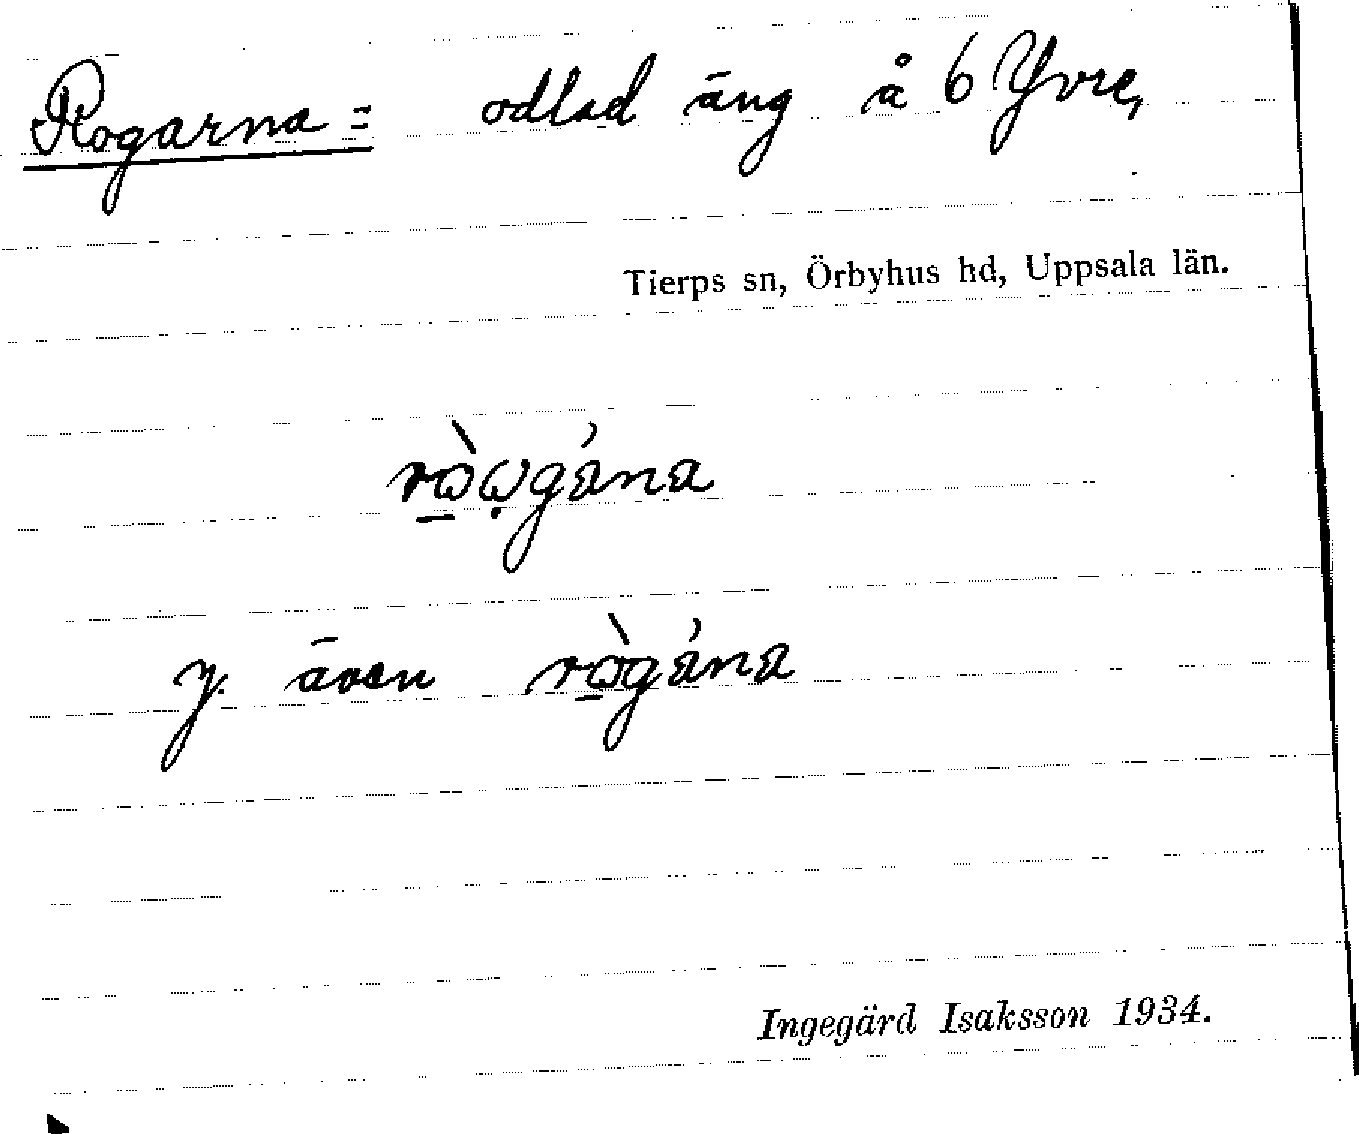 Rogarna = odlad äng å 6 Yvre,
Tierps sn, Örbyhus hd, Uppsala län.
rὼ̱ω̣gάna
y. även rὼ̱gάna
Ingegärd Isaksson 1934.